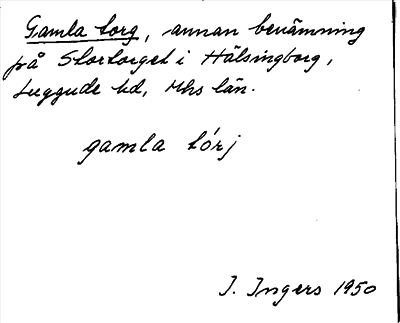 Gamla torg, annan benämning
på Stortorget i Hälsingborg,
Luggude hd, Mhs län.
gamla tórj
I. Ingers 1950